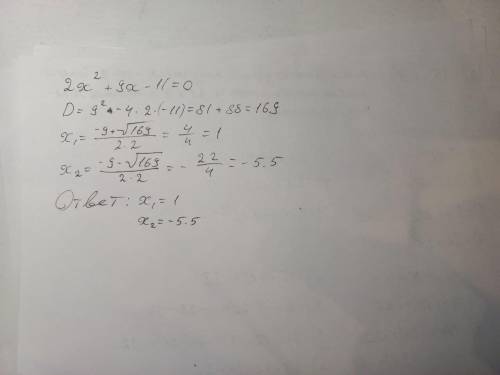 2x² + 9x - 11 = 0
D = 9² - 4 · 2 · (-11) = 81 + 88 = 169
x₁ = (-9 + √169) / (2 · 2) = 4/4 = 1
x₂ = (-9 - √169) / (2 · 2) = - 22/4 = - 5.5
Ответ: x₁ = 1
x₂ = -5.5